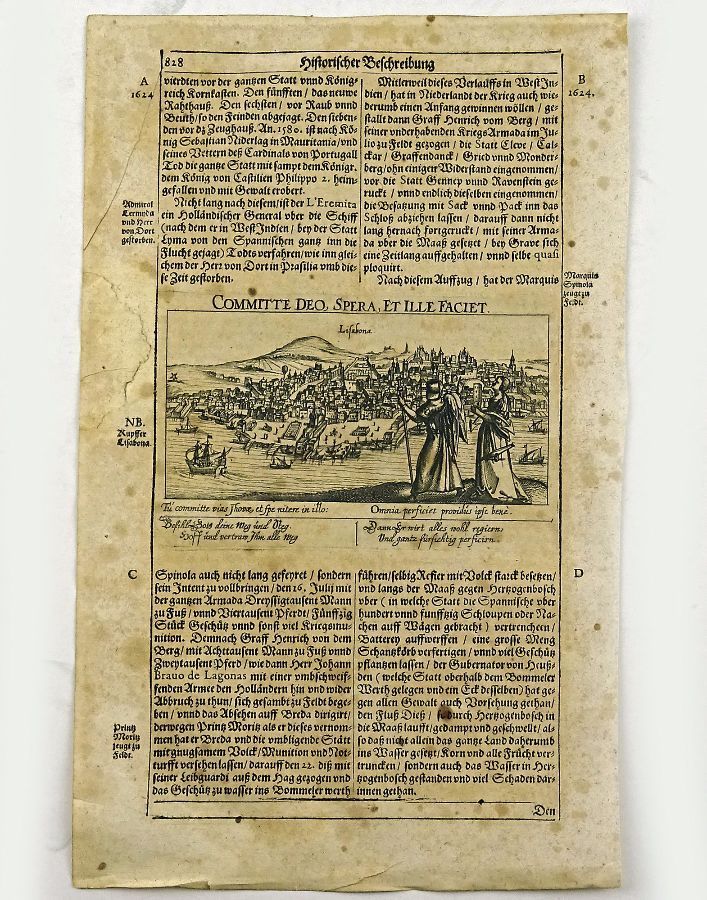 828
Historischer Beschreibung
A
1624
vierdten vor der gantzen Statt vnnd Königs
reich Kornkasten. Den fünfften / das neuwe
Rahthauß. Den sechsten / vor Raub vnnd
Beuth / so den Feinden abgejagt. Den sieben-
den vor dz Zeughauß. An. 1580. ist nach Kö-
nig Sebastian Niderlag in Mauritania / vnd
seines Vettern deß Cardinals von Portugall
Tod die gantze Statt mit sampt dem Königr.
dem König von Castilien Philippo 2. heim-
gefallen vnd mit Gewalt erobert.
Admiral
Lermyda
vnd Herr
von Dort
gestorben.
Nicht lang nach diesem / ist der L'Eremita
ein Holländischer General vber die Schiff
(nach dem er in West Indien / bey der Statt
Lyma von den Spannischen gantz inn die
Flucht gejagt) Todts verfahren / wie inn glei-
chem der Herr von Dort in Prasilia vmb die-
se Zeit gestorben.
B
1624.
Mitlerweil dieses Verlauffs in West In-
dien / hat in Niderlandt der Krieg auch wie-
derumb einen Anfang gewinnen wöllen / ge-
stallt dann Graff Henrich vom Berg / mit
seiner vnderhabenden Kriegs Armada im Ju-
lio zu Feldt gezogen / die Statt Cleve / Cal-
ckar / Graffendanck / Gried vnnd Monder-
berg / ohn einiger Widerstand eingenommen /
vor die Statt Gennep vnnd Ravenstein ge-
ruckt / vnnd endlich dieselben eingenommen /
die Besatzung mit Sack vnnd Pack inn das
Schloß abziehen lassen / darauff dann nicht
lang hernach fortgeruckt / mit seiner Arma-
da vber die Maaß gesetzt / bey Grave sich
eine Zeitlang auffgehalten / vnnd selbe quasi
ploquirt.
Nach diesem Auffzug / hat der Marquis
Marquis
Spinola
zeugt zu
Feldt.
COMMITTE DEO, SPERA, ET ILLE FACIET.
Lisabona.
NB.
Kupffer
Lisabona.
Tu committe vias Jhovæ, et spe nitere in illo:
Omnia perficiet providus ipse bene.
Befihl Gott deine Weg und Steg.
Hoff und vertraw Ihm alle Weg
Dann Er wirt alles wohl regiern,
Und gantz fürsichtig perficirn.
C
Spinola auch nicht lang gefeyret / sondern
sein Intent zu vollbringen / den 26. Julij mit
der gantzen Armada Dreyssigtausent Mann
zu Fuß / vnnd Viertausent Pferdt / Fünffzig
Stück Geschütz vnnd sonst viel Kriegsmu-
nition. Demnach Graff Henrich von dem
Berg / mit Achttausent Mann zu Fuß vnnd
Zweytausent Pferd / wie dann Herr Johann
Brauo de Lagonas mit einer vmbschweif-
fenden Armee den Holländern hin vnd wider
Abbruch zu thun / sich gesambt zu Feldt bege-
ben / vnnd das Absehen auff Breda dirigirt /
derwegen Printz Moritz als er dieses vernom-
men hat er Breda vnd die vmbligende Stätt
mit gnugsamem Volck / Munition vnd Not-
turfft versehen lassen / darauff den 22. diß mit
seiner Leibguardi auß dem Hag gezogen vnd
das Geschütz zu wasser ins Bommeler werth
Printz
Moritz
zeugt zu
Feldt.
D
führen / selbig Refier mit Volck starck besetzen /
vnd langs der Maaß gegen Hertzogenbosch
vber (in welche Statt die Spannische vber
hundert vnnd funfftzig Schloupen oder Na-
chen auff Wägen gebracht) vertrencheen /
Batterey auffwerffen / eine grosse Meng
Schantzkörb verfertigen / vnnd viel Geschütz
pflantzen lassen / der Gubernator von Heuß-
den (welche Statt oberhalb dem Bommeler
Werth gelegen vnd ein Eck desselben) hat ge-
gen allen Gewalt auch Vorsehung gethan /
den Fluß Dieß / so durch Hertzogenbosch in
die Maaß laufft / gedampt vnd geschwellt / al-
so daß nicht allein das gantz Land daherumb
ins Wasser gesetzt / Korn vnd alle Frücht ver-
truncken / sondern auch das Wasser in Her-
tzogenbosch gestanden vnd viel Schaden dar-
innen gethan.
Den